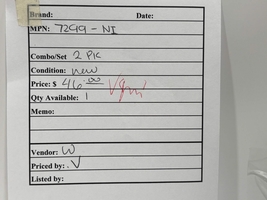 Brand: Date:
MPN: 7299-NI
Combo/Set 2 PK
Condition: new
Price: $ 46.00
Qty Available: 1
Memo:
Vendor: W
Priced by: V
Listed by: